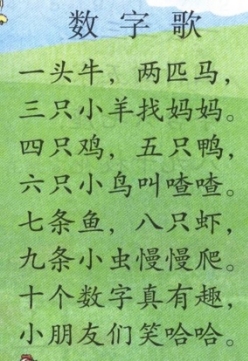 数字歌
一头牛，两匹马，
三只小羊找妈妈。
四只鸡，五只鸭，
六只小鸟叫喳喳。
七条鱼，八只虾，
九条小虫慢慢爬。
十个数字真有趣，
小朋友们笑哈哈。